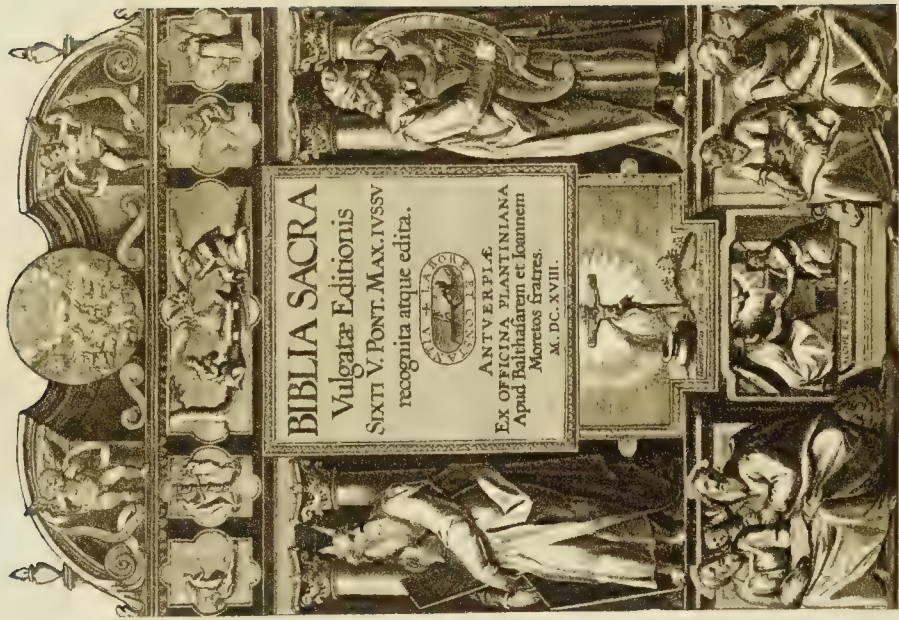 BIBLIA SACRA
Vulgatæ Editionis
SIXTI V. PONT. MAX. IVSSV
recognita atque edita.
LABORE ET CONSTANTIA
ANTVERPIÆ
EX OFFICINA PLANTINIANA
Apud Balthasarem et Ioannem
Moretos fratres.
M. DC. XVIII.